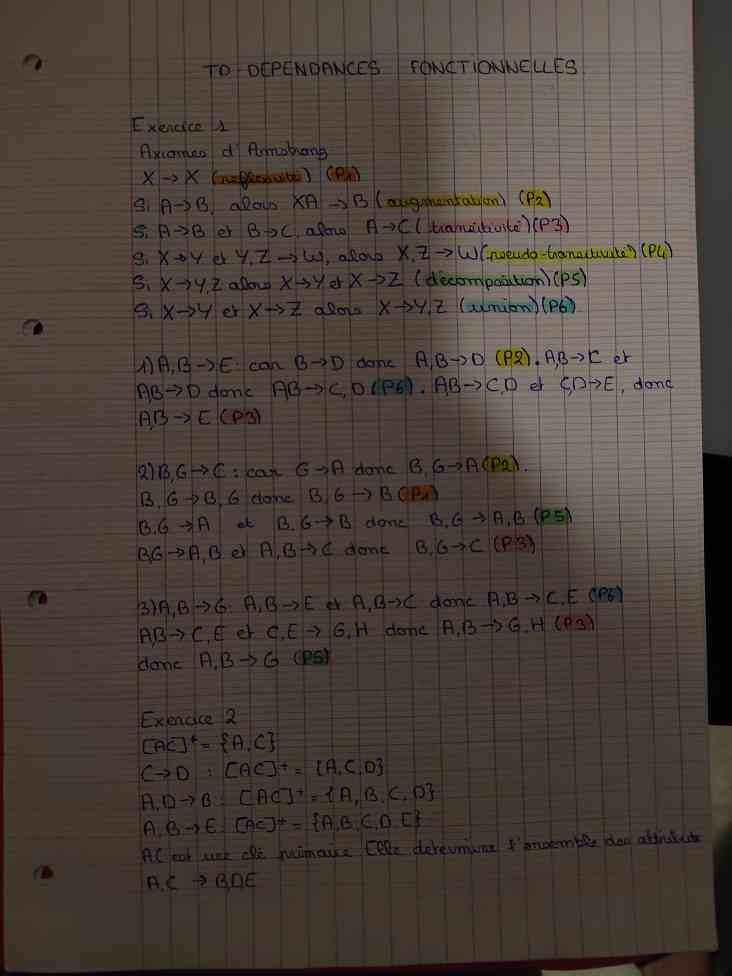 TD DEPENDANCES FONCTIONNELLES
Exercice 1
Axiomes d'Armstrong
X → X (reflexivité) (P1)
Si A→B, alors XA → B (augmentation) (P2)
Si A→B et B→C, alors A→C (transitivité) (P3)
Si X→Y et Y,Z → W, alors X,Z → W (pseudo-transitivité) (P4)
Si X→Y,Z alors X→Y et X→Z (décomposition) (P5)
Si X→Y et X→Z alors X→Y,Z (union) (P6)
1) A,B → E : car B→D donc A,B→D (P2). A,B→C et
A,B→D donc A,B→C,D (P6). A,B→C,D et C,D→E, donc
A,B→E (P3)
2) B,G→C : car G→A donc B,G→A (P2).
B,G→B,G donc B,G→B (P1)
B,G→A et B,G→B donc B,G→A,B (P5)
B,G→A,B et A,B→C donc B,G→C (P3)
3) A,B→G : A,B→E et A,B→C donc A,B→C,E (P6)
A,B→C,E et C,E→G,H donc A,B→G,H (P3)
donc A,B→G (P5)
Exercice 2
[AC]⁺ = {A,C}
C→D : [AC]⁺ = {A,C,D}
A,D→B : [AC]⁺ = {A,B,C,D}
A,B→E : [AC]⁺ = {A,B,C,D,E}
AC est une clé primaire. Elle determine l'ensemble des attributs
A,C → BDE